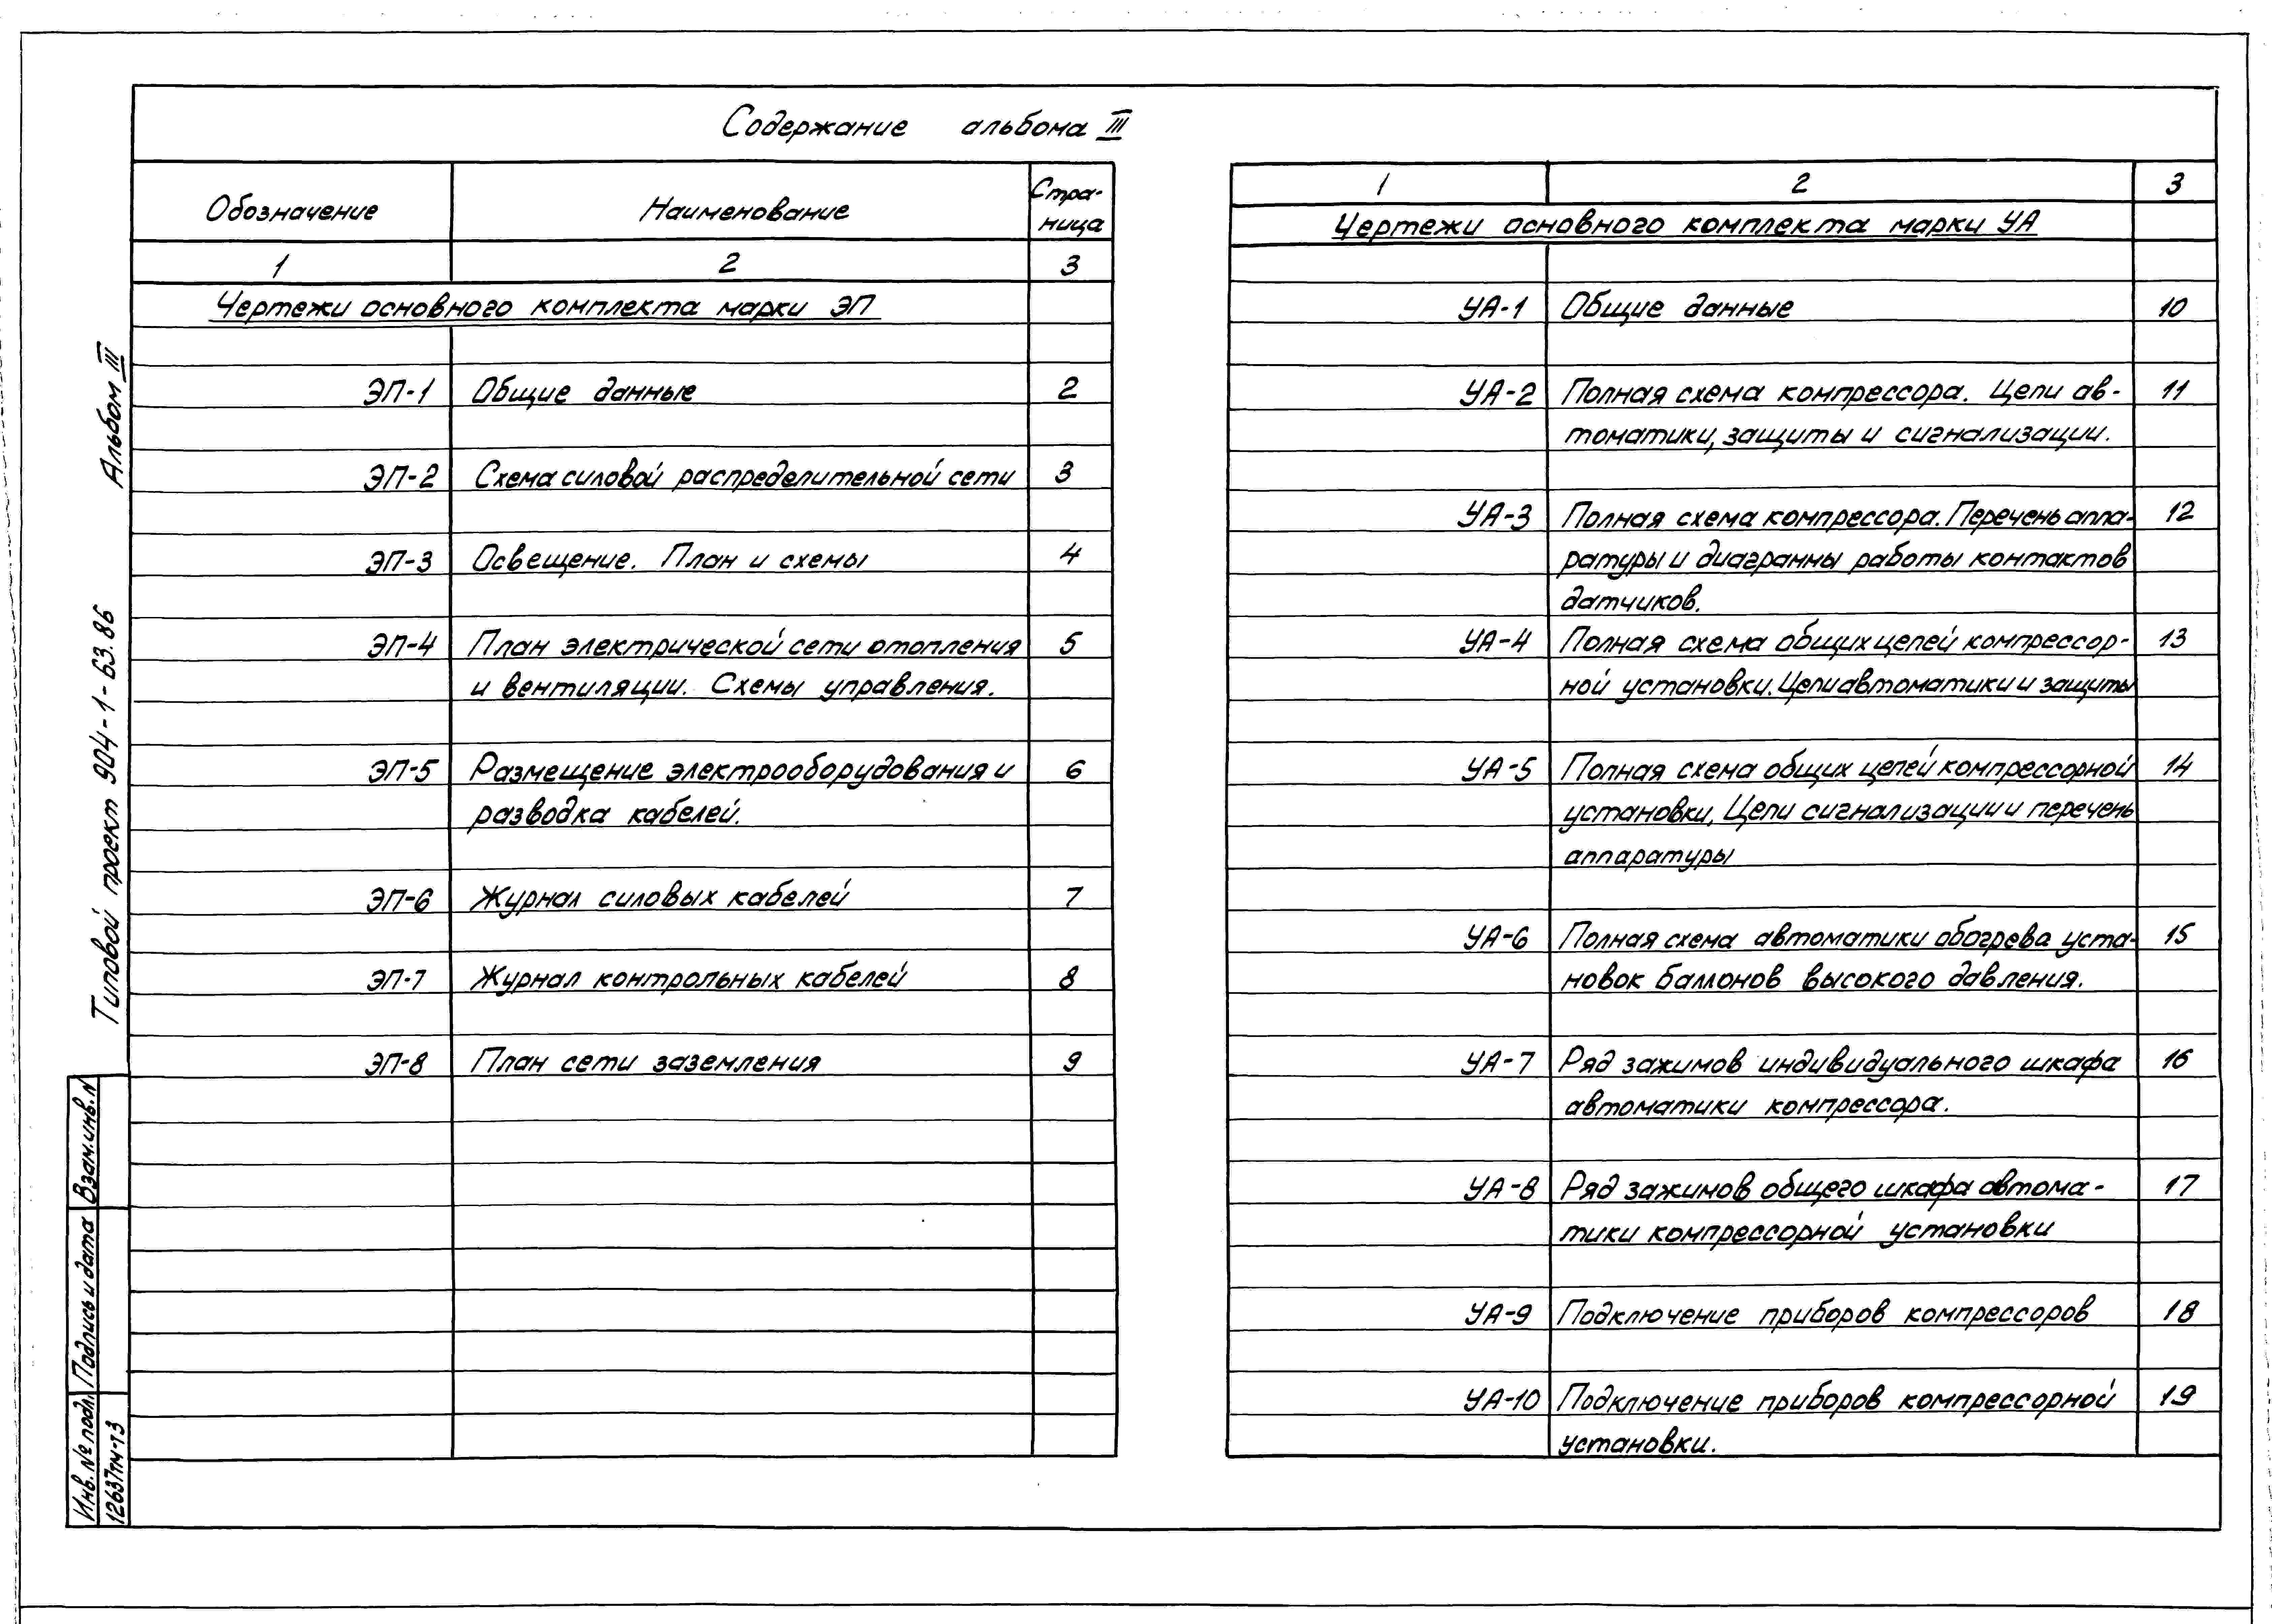 Содержание альбома III
Обозначение Наименование Стра-
ница
1 2 3
Чертежи основного комплекта марки ЭП
ЭП-1 Общие данные 2
ЭП-2 Схема силовой распределительной сети 3
ЭП-3 Освещение. План и схемы 4
ЭП-4 План электрической сети отопления 5
и вентиляции. Схемы управления.
ЭП-5 Размещение электрооборудования и 6
разводка кабелей.
ЭП-6 Журнал силовых кабелей 7
ЭП-7 Журнал контрольных кабелей 8
ЭП-8 План сети заземления 9
1 2 3
Чертежи основного комплекта марки УА
УА-1 Общие данные 10
УА-2 Полная схема компрессора. Цепи ав- 11
томатики, защиты и сигнализации.
УА-3 Полная схема компрессора. Перечень аппа- 12
ратуры и диаграммы работы контактов
датчиков.
УА-4 Полная схема общих цепей компрессор- 13
ной установки. Цепи автоматики и защиты
УА-5 Полная схема общих цепей компрессорной 14
установки, Цепи сигнализации и перечень
аппаратуры
УА-6 Полная схема автоматики обогрева уста- 15
новок баллонов высокого давления.
УА-7 Ряд зажимов индивидуального шкафа 16
автоматики компрессора.
УА-8 Ряд зажимов общего шкафа автома- 17
тики компрессорной установки
УА-9 Подключение приборов компрессоров 18
УА-10 Подключение приборов компрессорной 19
установки.
Альбом III
Типовой проект 904-1-63.86
Взам.инв.N
Подпись и дата
Инв. № подл.
12637тм-т3